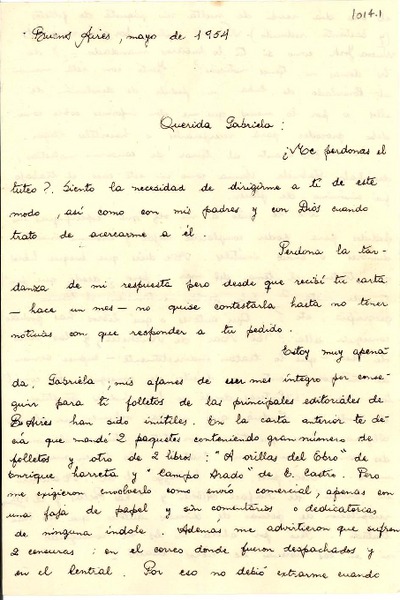 1014.1
Buenos Aires, mayo de 1954
Querida Gabriela:
¿Me perdonas el
tuteo? Siento la necesidad de dirigirme a ti de este
modo, así como con mis padres y con Dios cuando
trato de acercarme a él.
Perdona la tar-
danza de mi respuesta pero desde que recibí tu carta
— hace un mes — no quise contestarla hasta no tener
noticias con que responder a tu pedido.
Estoy muy apena
da, Gabriela; mis afanes de un mes íntegro por conse-
guir para ti folletos de las principales editoriales de
B. Aires han sido inútiles. En la carta anterior te de-
cía que mandé 2 paquetes conteniendo gran número de
folletos y otro de 2 libros: "A orillas del Ebro" de
Enrique Larreta y "Campo Arado" de E. Castro. Pero
me exigieron envolverlo como envío comercial, apenas con
una faja de papel y sin comentarios o dedicatorias
de ninguna índole. Además me advirtieron que sufren
2 censuras: en el correo donde fueron despachados y
en el Central. Por eso no debió extrarme cuando